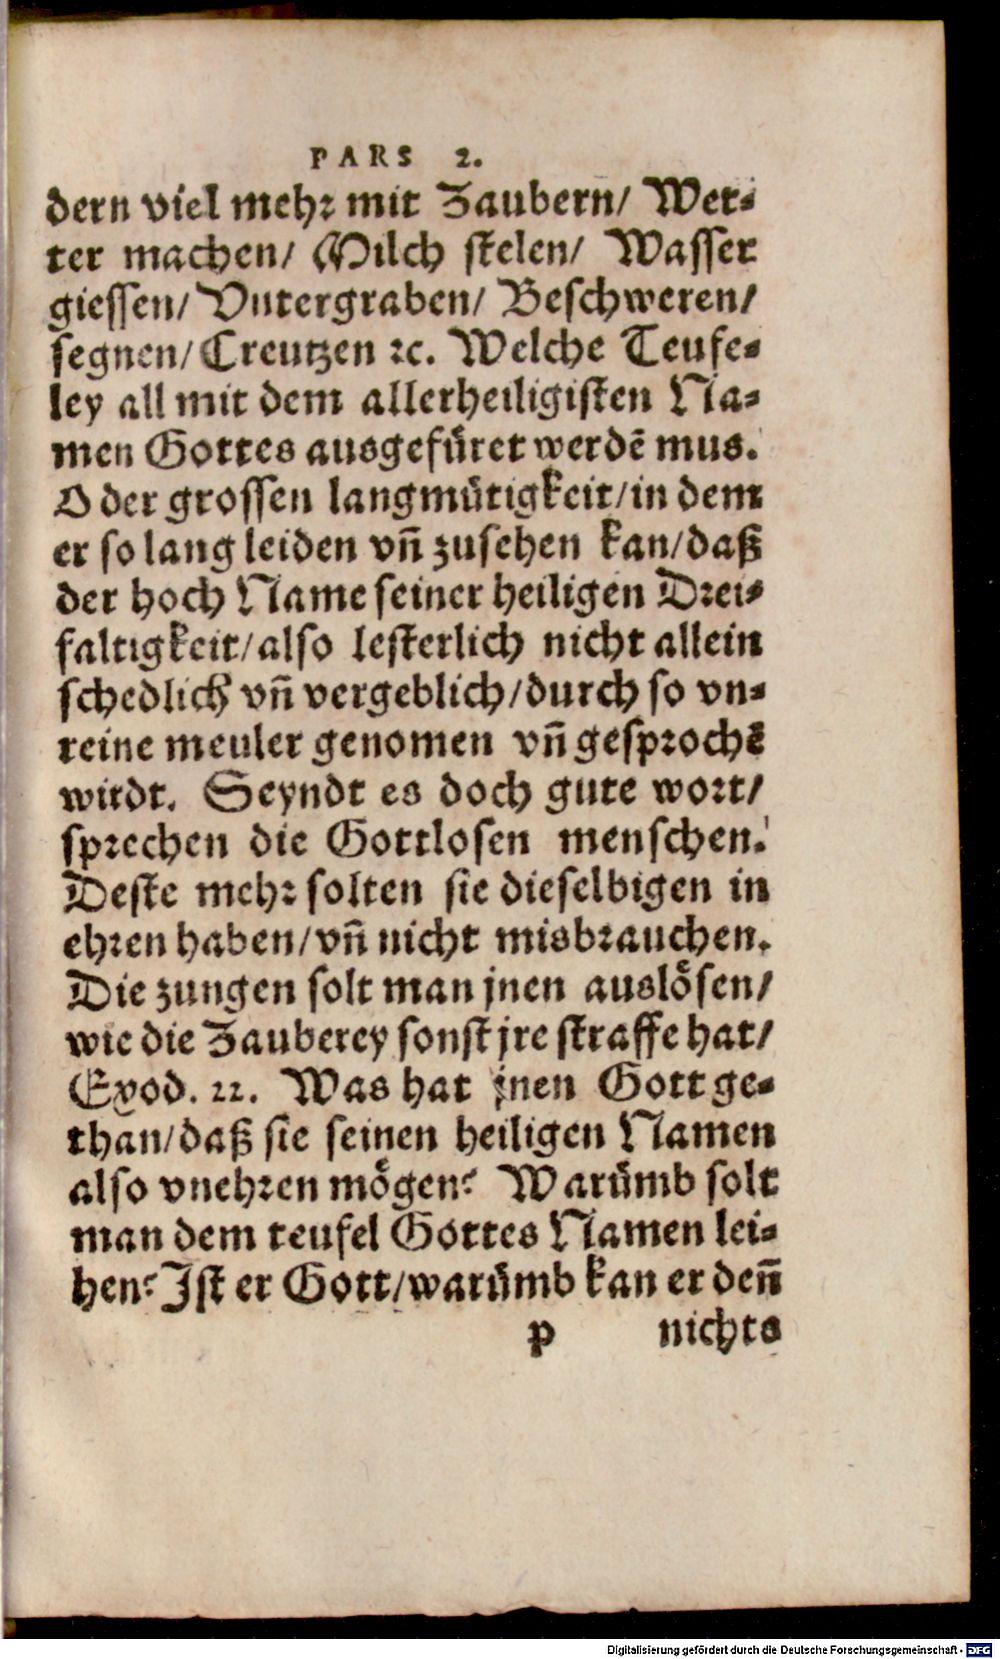 PARS 2.
dern viel mehr mit Zaubern/ Wet-
ter machen/ Milch stelen/ Wasser
giessen/ Vntergraben/ Beschweren/
segnen/ Creutzen ꝛc. Welche Teufe-
ley all mit dem allerheiligisten Na-
men Gottes ausgefüret werdē mus.
O der grossen langmütigkeit/ in dem
er so lang leiden vn̄ zusehen kan/ daß
der hoch Name seiner heiligen Drei-
faltigkeit/ also lesterlich nicht allein
schedlich vn̄ vergeblich/ durch so vn-
reine meuler genomen vn̄ gesprochē
wirdt. Seyndt es doch gute wort/
sprechen die Gottlosen menschen.
Deste mehr solten sie dieselbigen in
ehren haben/ vn̄ nicht misbrauchen.
Die zungen solt man jnen auslösen/
wie die Zauberey sonst jre straffe hat/
Exod. 22. Was hat jnen Gott ge-
than/ daß sie seinen heiligen Namen
also vnehren mögen? Warümb solt
man dem teufel Gottes Namen lei-
hen? Ist er Gott/ warümb kan er den̄
p nichts
Digitalisierung gefördert durch die Deutsche Forschungsgemeinschaft - DFG